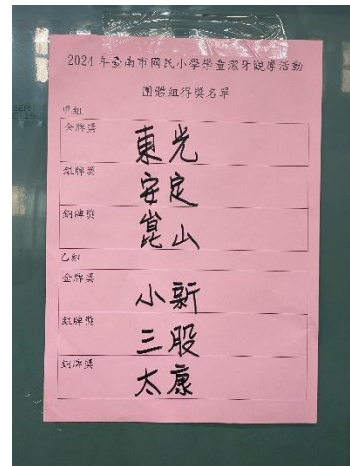 2024年臺南市國民小學學童潔牙觀摩活動
團體組得獎名單
甲組
金牌獎
東光
銀牌獎
安定
銅牌獎
崑山
乙組
金牌獎
小新
銀牌獎
三股
銅牌獎
太康